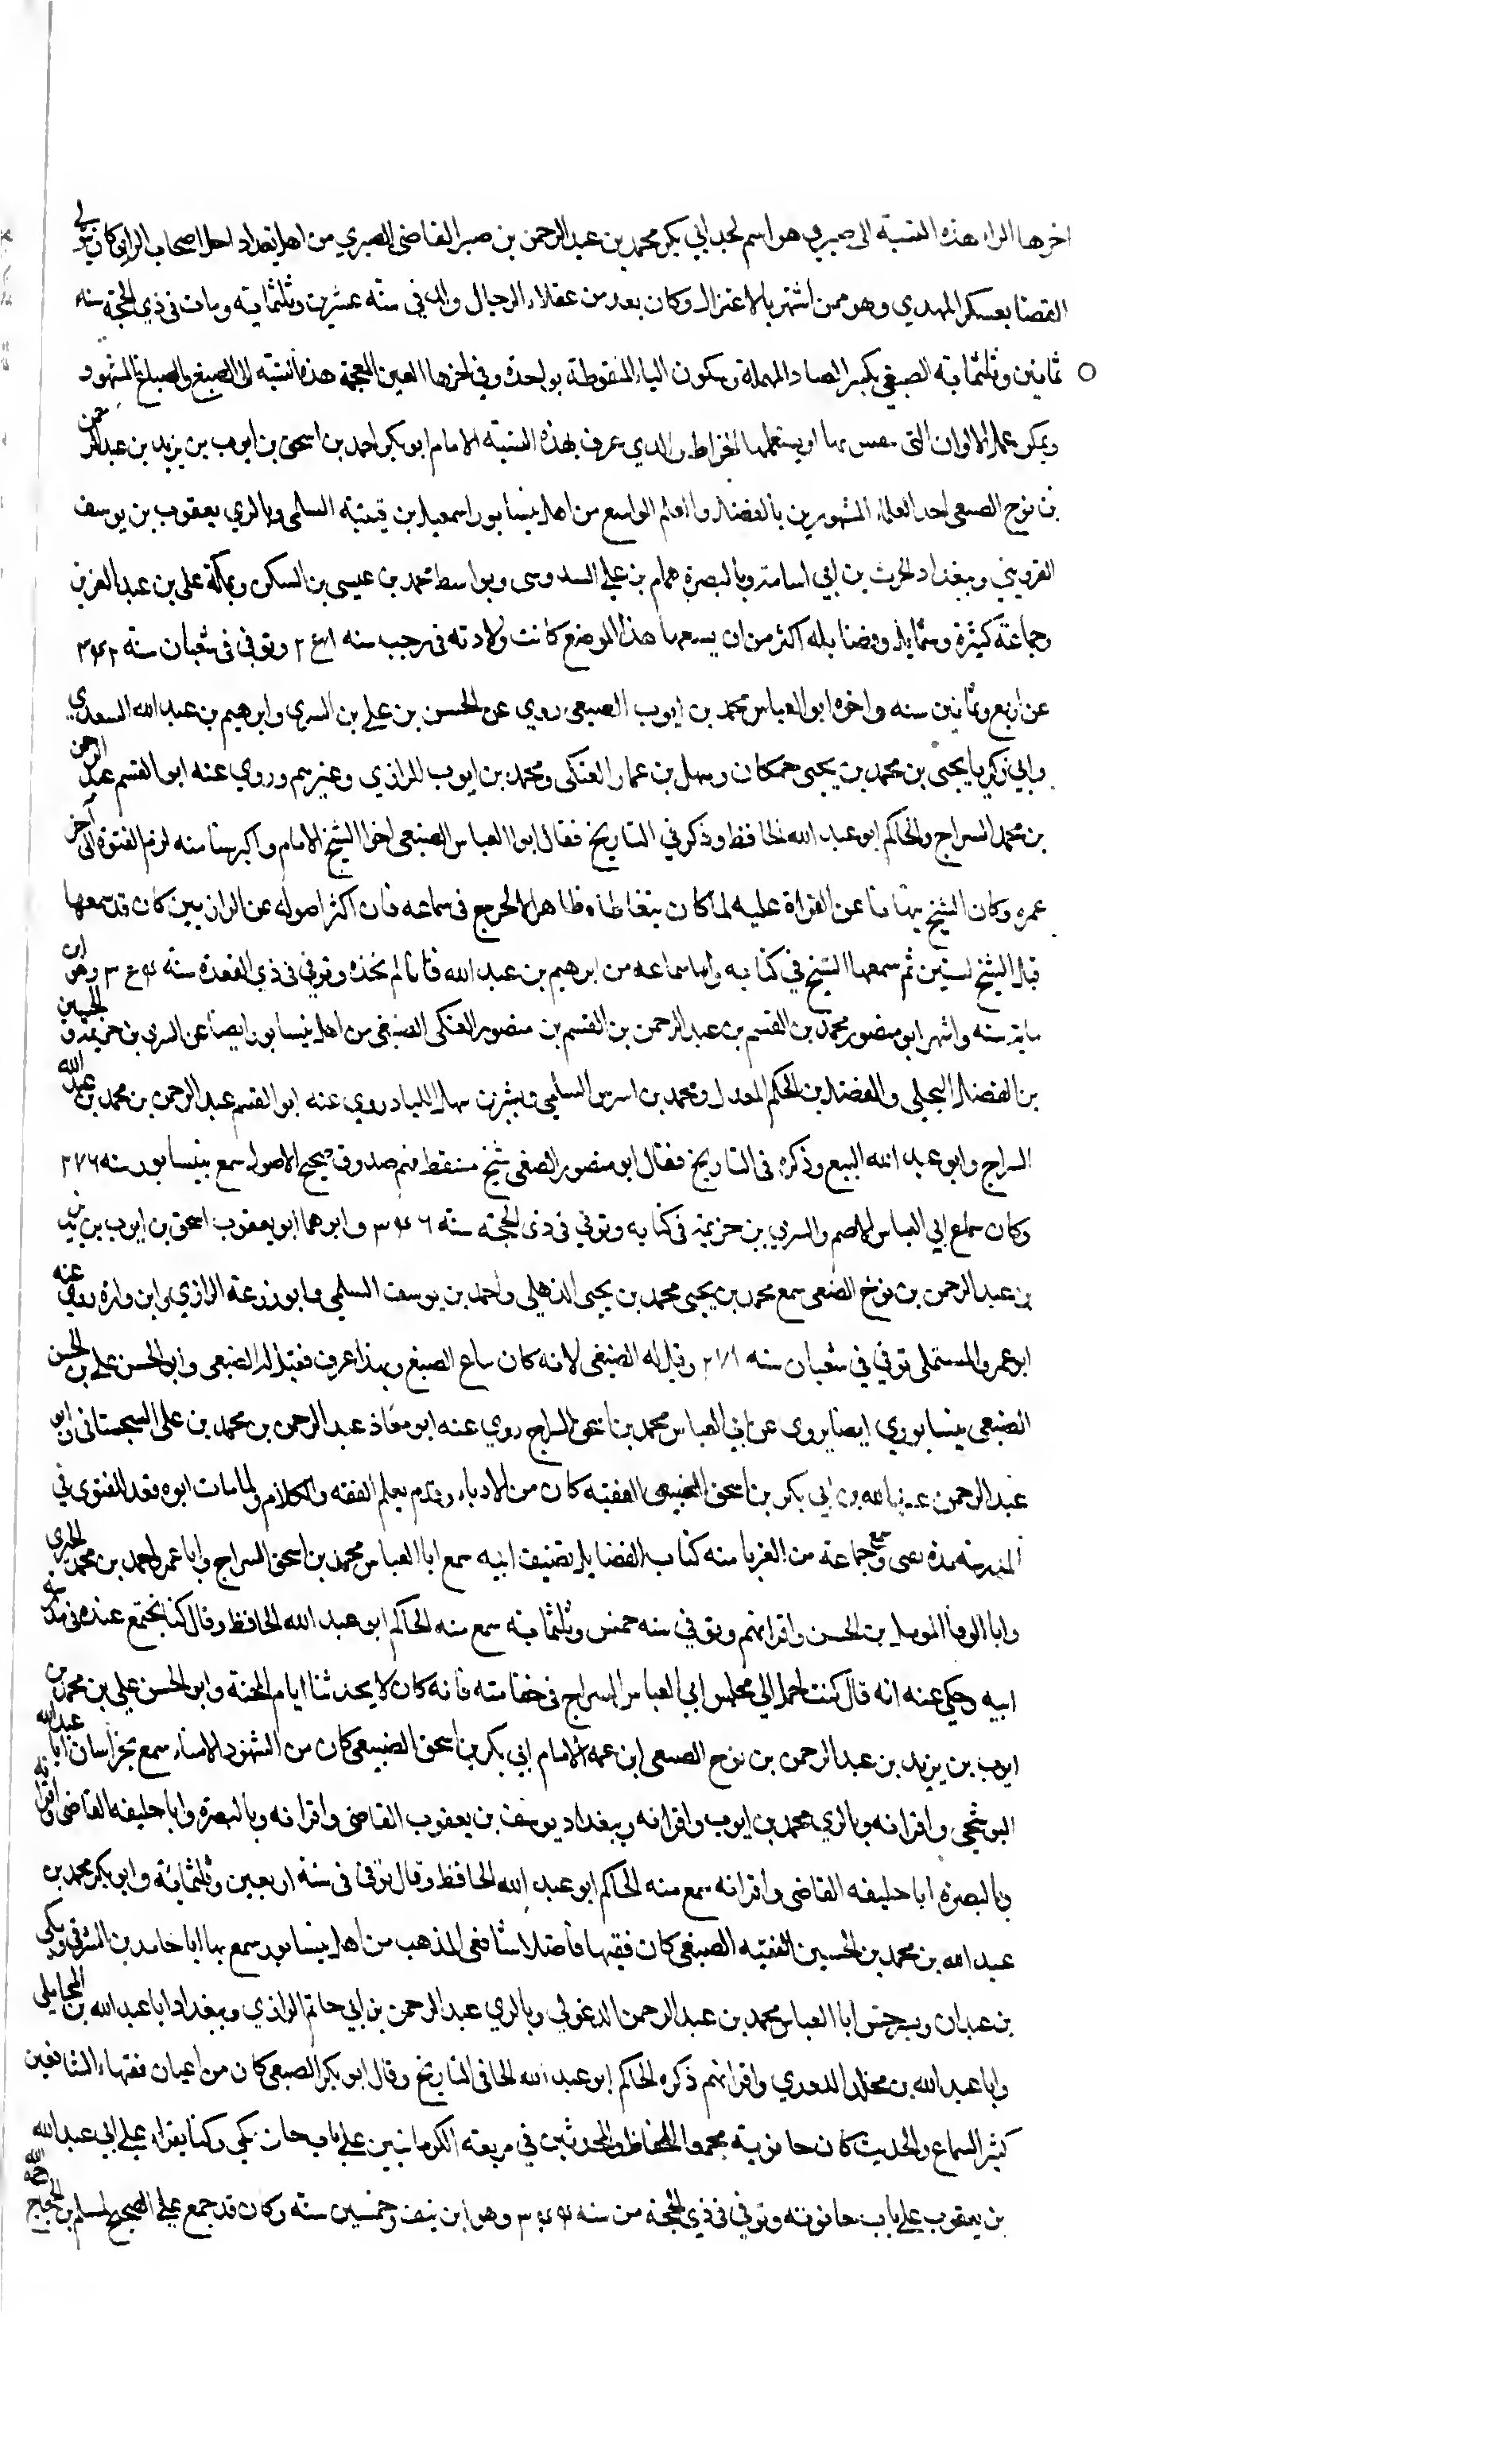 اخرها الراء هذه النسبة الى صبر وهو اسم لجد ابي بكر محمد بن عبد الرحمن بن صبر القاضي الصبري من اهل بغداد احد اصحاب الراي كان يتولى
القضا بعسكر المهدي وهو ممن اشتهر بالاعتزال وكان يعد من عقلاء الرجال ولد في سنة عشرين وثلثماية ومات في ذي الحجة سنه
ثمانين وثلثماية الصبغي بكسر الصاد المهملة وسكون الباء المنقوطة بواحدة وفي اخرها الغين المعجمة هذه النسبة الى الصبغ والصباغ المشهور
ويمكن عمل الالوان التي بها او يستعملها الخراط والذي عرف بهذه النسبة الامام ابو بكر احمد بن اسحق بن ايوب بن يزيد بن عبد الرحمن
بن نوح الصبغي احد العلماء المشهورين بالفضل والعلم الواسع من اهل نيسابور اسمعيل بن قتيبة السلمي وبالري يعقوب بن يوسف
القزويني وببغداد الحرث بن ابي اسامة وبالبصرة همام بن علي السدوسي وبواسط محمد بن عيسى بن السكن وبمكة علي بن عبد العزيز
وجماعة كثيرة وشمايله وفضايله اكثر من ان يسعها هذا الموضع كانت ولادته في رجب سنه وتوفي في شعبان سنة ٣۴٢
عن اربع وثمانين سنه واخوه ابو العباس محمد بن ايوب الصبغي روي عن الحسن بن علي بن السري وابرهيم بن عبد الله السعدي
وابي زكريا يحيى بن محمد بن يحيى حمكان وسهل بن عمار العتكي ومحمد بن ايوب الرازي وغيرهم وروي عنه ابو القسم عبد الرحمن
بن محمد السراج والحاكم ابو عبد الله الحافظ وذكر في التاريخ فقال ابو العباس الصبغي اخوا الشيخ الامام واكبر سنا منه لزم الفتوة الى آخر
عمره وكان الشيخ ينهانا عن القراة عليه لما كان يتعاطاه ظاهرا لا لجرح في سماعه فان اكثر اصوله عن الرازيين كان قد سمعها
قبل الشيخ لسنين ثم سمعها الشيخ في كتابه واما سماعه من ابرهيم بن عبد الله فانا لم نجده وتوفي في ذي القعدة سنة وهو ابن
ماية سنه واشهر ابو منصور محمد بن القسم بن عبد الرحمن بن القسم بن منصور العتكي الصبغي من اهل نيسابور ايضا عن السري بن خزيمة والحسين
بن الفضل البجلي والفضل بن الحكم المعدل ومحمد بن اسرس السلمي وبشر بن سهل اللباد روي عنه ابو القسم عبد الرحمن بن محمد بن عبد الله
السراج وابو عبد الله البيع وذكره في التاريخ فقال ابو منصور الصبغي شيخ متيقظ فهم صدوق صحيح الاصول سمع بنيسابور سنه ٢٧٦
وكان سماع ابي العباس الاصم والسري بن خزيمة في كتابه وتوفي في ذي الحجة سنة ٣۴٦ وابوهما ابو يعقوب اسحق بن ايوب بن يزيد
بن عبد الرحمن بن نوح الصبغي سمع محمد بن يحيى محمد بن يحيى الذهلي واحمد بن يوسف السلمي وابو زرعة الرازي وابن واره روي عنه
ابو عمرو المستملي توفي في شعبان سنه ٢٧١ وقيل له الصبغي لانه كان يباع الصبغ وبهذا عرف فقيل له الصبغي وابو الحسن علي بن الحسن
الصبغي نيسابوري ايضا يروى عن ابي العباس محمد بن اسحق السراج روي عنه ابو معاذ عبد الرحمن بن محمد بن علي السجستاني وابو
عبد الرحمن عبد الله بن ابي بكر بن اسحق الصبغي الفقيه كان من الادباء وتقدم بعلم الفقه والكلام ولما مات ابوه فقد للفتوى في
المدرسة مدة وسمع جماعة من الغربا منه كتاب الفضايل تصنيف ابيه سمع ابا العباس محمد بن اسحق السراج وابا عمرو احمد بن محمد الحيري
وابا الوفا المومل بن الحسن واقرانهم وتوفي في سنه خمس وثلثماية سمع منه الحاكم ابو عبد الله الحافظ وقال كنا نجتمع عنده في مدرسة
ابيه وحكي عنه انه قال كنت احمل الى مجلس ابي العباس السراج في خفا منه فانه كان لا يحدثنا ايام المحنة وابو الحسن علي بن محمد بن
ايوب بن يزيد بن عبد الرحمن بن نوح الصبغي ابن عم الامام ابي بكر بن اسحق الصبغي كان من الشهود الامناء سمع بخراسان ابا عبد الله
البوشنجي واقرانه وبالري محمد بن ايوب واقرانه وببغداد يوسف بن يعقوب القاضي واقرانه وبالبصرة وابا خليفه القاضي واقرانه
وبالبصرة ابا خليفه القاضي واقرانه سمع منه الحاكم ابو عبد الله الحافظ وقال توفي في سنة اربعين وثلثمائة وابو بكر محمد بن
عبد الله بن محمد بن الحسين الفقيه الصبغي كان فقيها فاضلا شافعي المذهب من اهل نيسابور سمع بها ابا حامد بن الشرقي ومكي
بن عبدان وبسرخس ابا العباس محمد بن عبد الرحمن الدغولي وبالري عبد الرحمن بن ابي حاتم الرازي وببغداد ابا عبد الله بن المحاملي
وابا عبد الله بن مخلد الدوري واقرانهم ذكره الحاكم ابو عبد الله الحافى التاريخ وقال ابو بكر الصبغي كان من اعيان فقهاء الشافعين
كثير السماع والحديث كان حانوبته مجمع الحفاظ والمحدثين في مربعة الكرمانيين على باب خان مكي وكنا نقراء على ابي عبد الله
بن يعقوب على باب حانوته وتوفي في ذي الحجة من سنه ٣۴۴ وهو ابن نيف وخمسين سنة وكان قد جمع على الصحيح لمسلم بن الحجاج رحمه الله